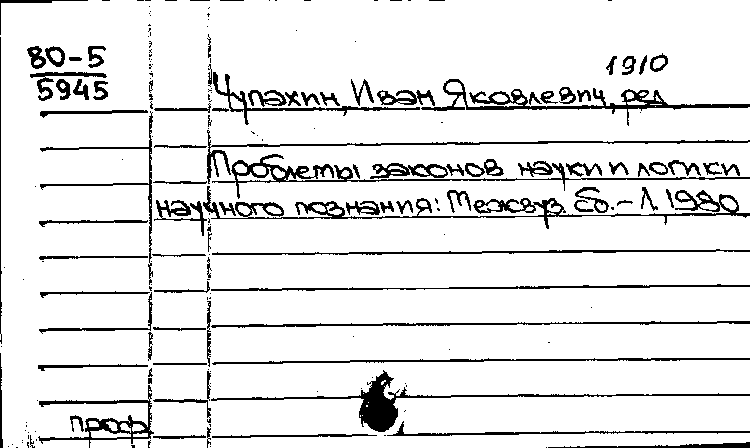 80-5
5945
1910
Чупахин, Иван Яковлевич, ред
Проблемы законов науки и логики
научного познания: Межвуз. сб.- Л., 1980
проф